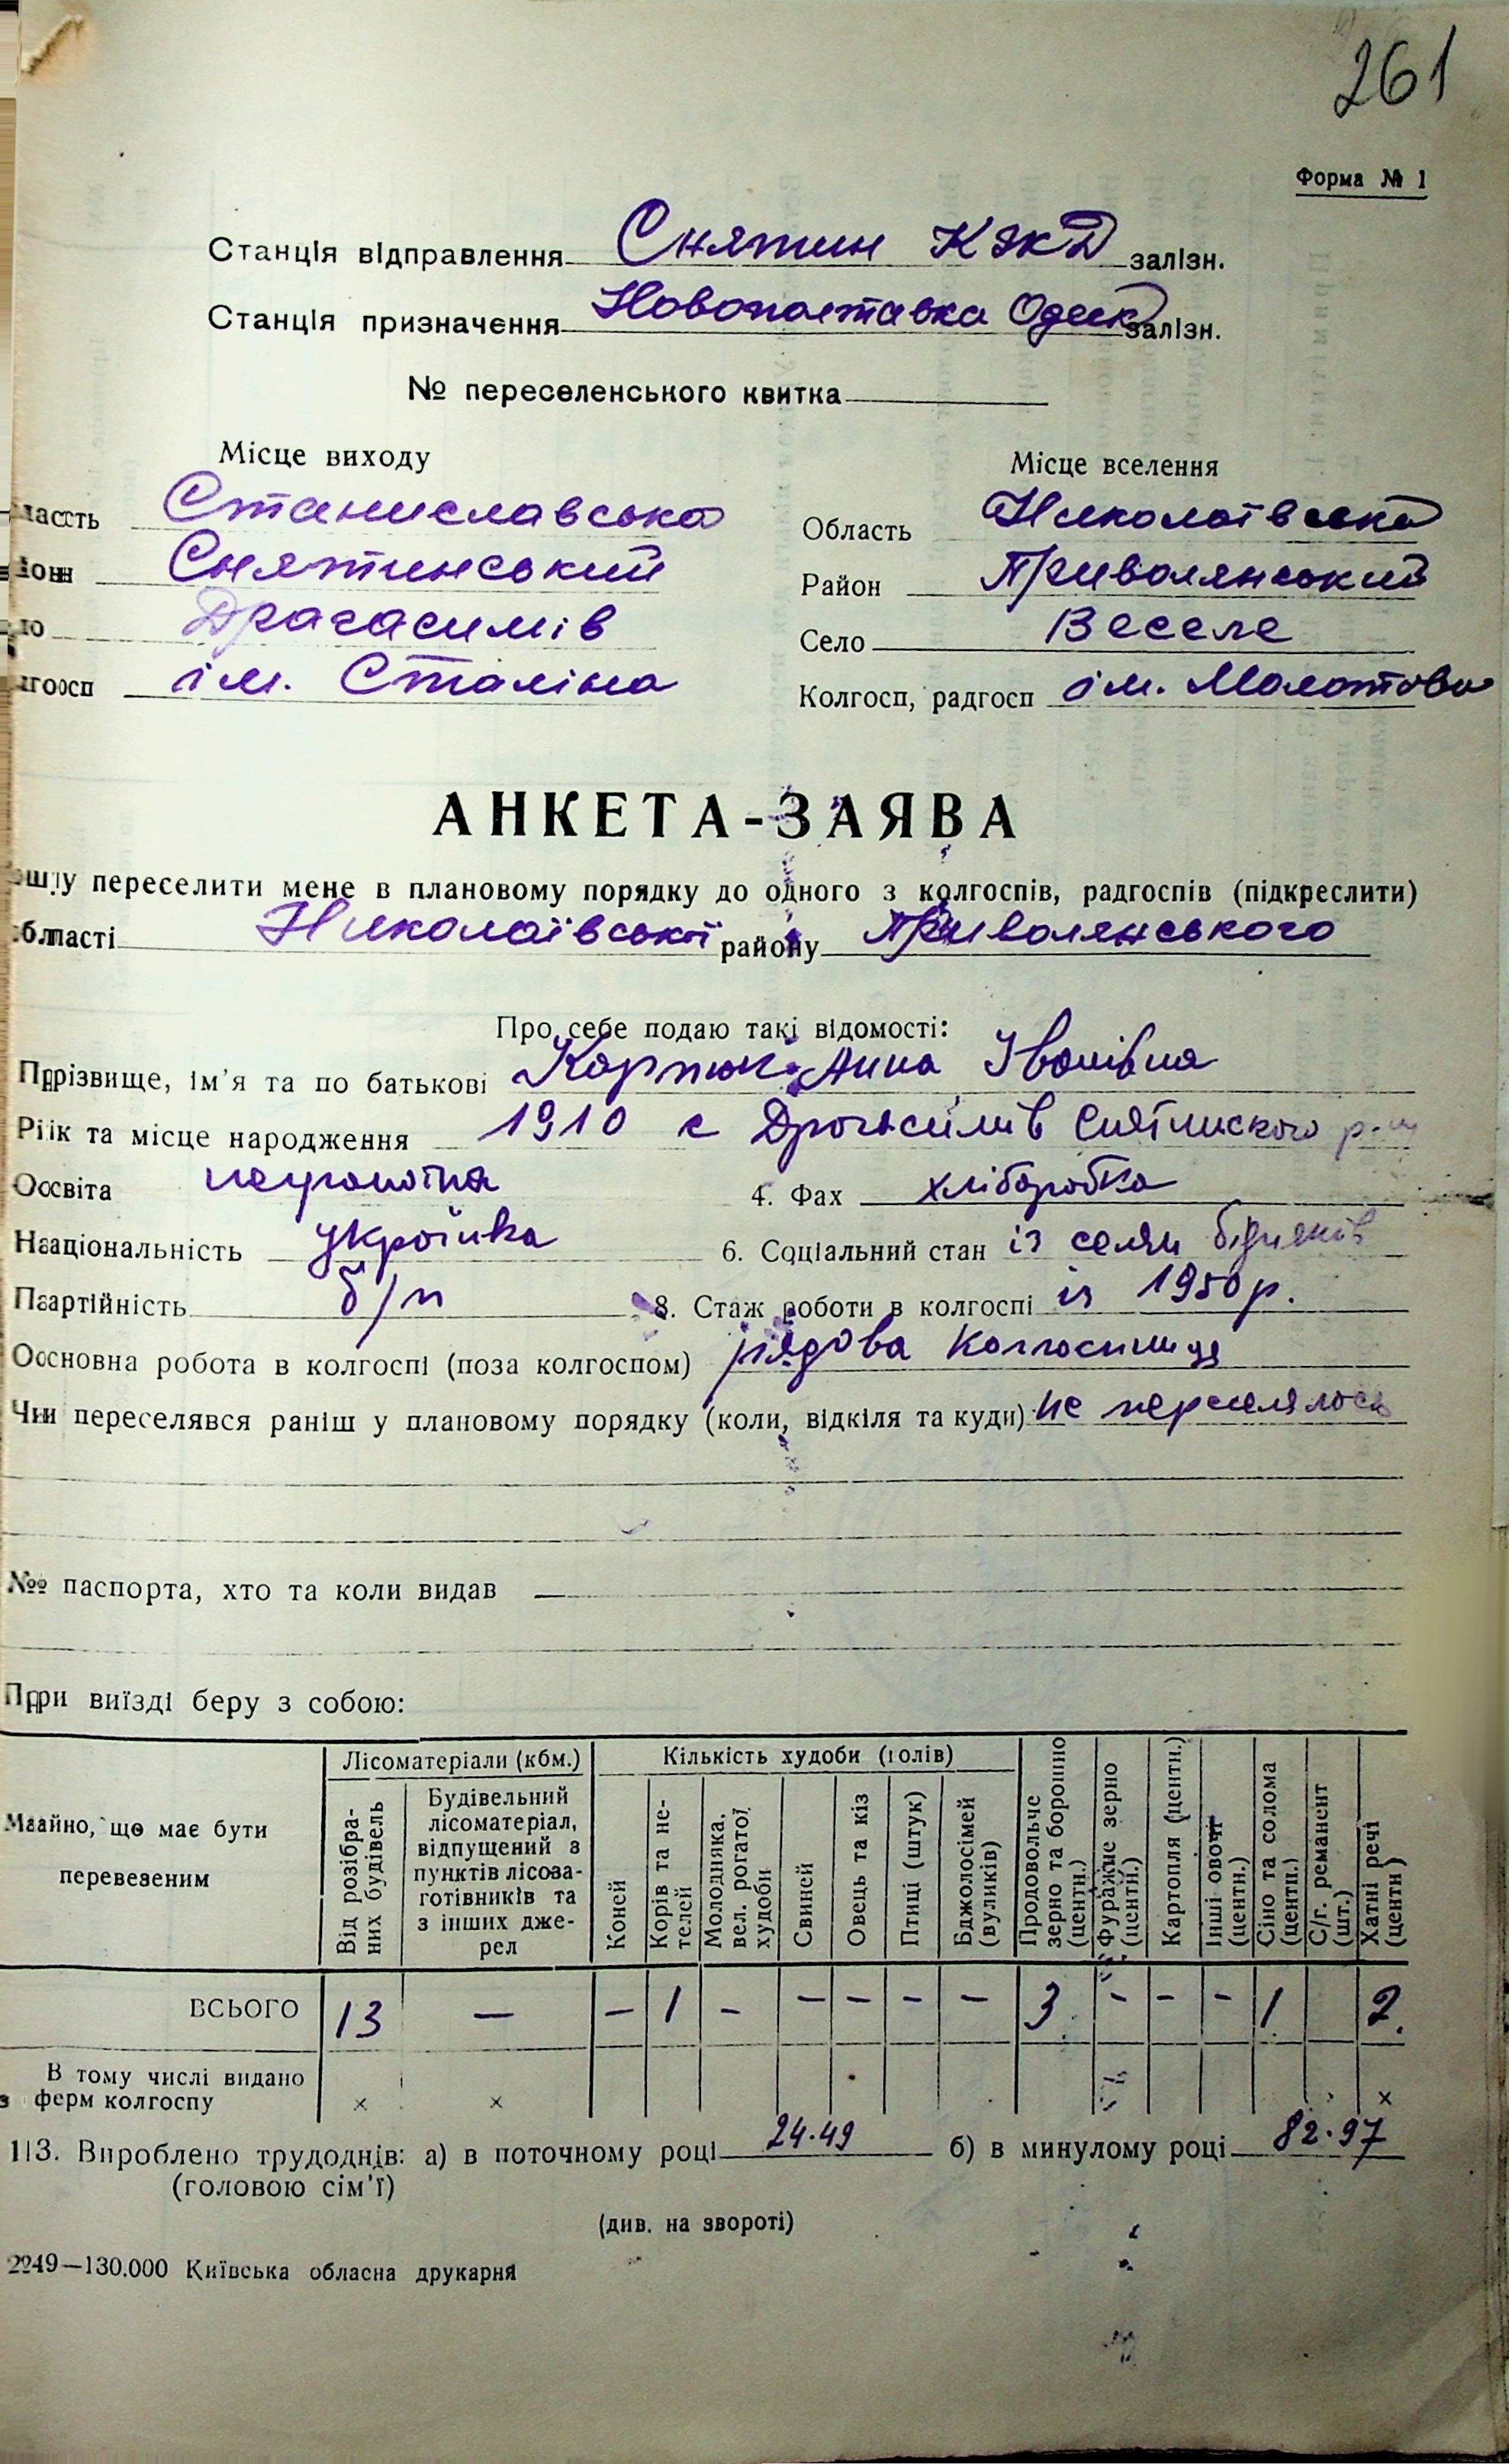 261
Форма № 1
Станція відправлення Снятин КЖД залізн.
Станція призначення Новополтавка Одеск залізн.
№ переселенського квитка
Місце виходу Місце вселення
ласть Станиславська Область Николаївська
йон Снятинський Район Привольянський
ло Драгасимів Село Веселе
лгосп ім. Сталіна Колгосп, радгосп ім. Молотова
АНКЕТА-ЗАЯВА
ошу переселити мене в плановому порядку до одного з колгоспів, радгоспів (підкреслити)
області Николаївської району Привольянського
Про себе подаю такі відомості:
Прізвище, ім'я та по батькові Карпюк Анна Іванівна
Рік та місце народження 1910 с Драгасимів Снятинского р-ну
Освіта неграмотна 4. Фах хліборобка
Національність українка 6. Соціальний стан із селян бідняків
Партійність б/п 8. Стаж роботи в колгоспі із 1950 р.
Основна робота в колгоспі (поза колгоспом) рядова колгоспниця
Чи переселявся раніш у плановому порядку (коли, відкіля та куди) не переселялась
№ паспорта, хто та коли видав
При виїзді беру з собою:
Майно, що має бути перевезеним
Лісоматеріали (кбм.) Кількість худоби (голів)
Від розібраних будівель
Будівельний лісоматеріал, відпущений з пунктів лісоза-готівників та з інших дже-рел
Коней
Корів та не-телей
Молодняка, вел. рогатої худоби
Свиней
Овець та кіз
Птиці (штук)
Бджолосімей (вуликів)
Продовольче зерно та борошно (центн.)
Фуражне зерно (центн.)
Картопля (центн.)
Інші овочі (центн.)
Сіно та солома (центн.)
С/г. реманент (шт.)
Хатні речі (центн)
ВСЬОГО 13 — – 1 – – – – – 3 – – – 1 2
В тому числі видано
з ферм колгоспу × × ×
13. Вироблено трудоднів: а) в поточному році 24.49 б) в минулому році 82.97
(головою сім'ї)
(див. на звороті)
2249—130.000 Київська обласна друкарня